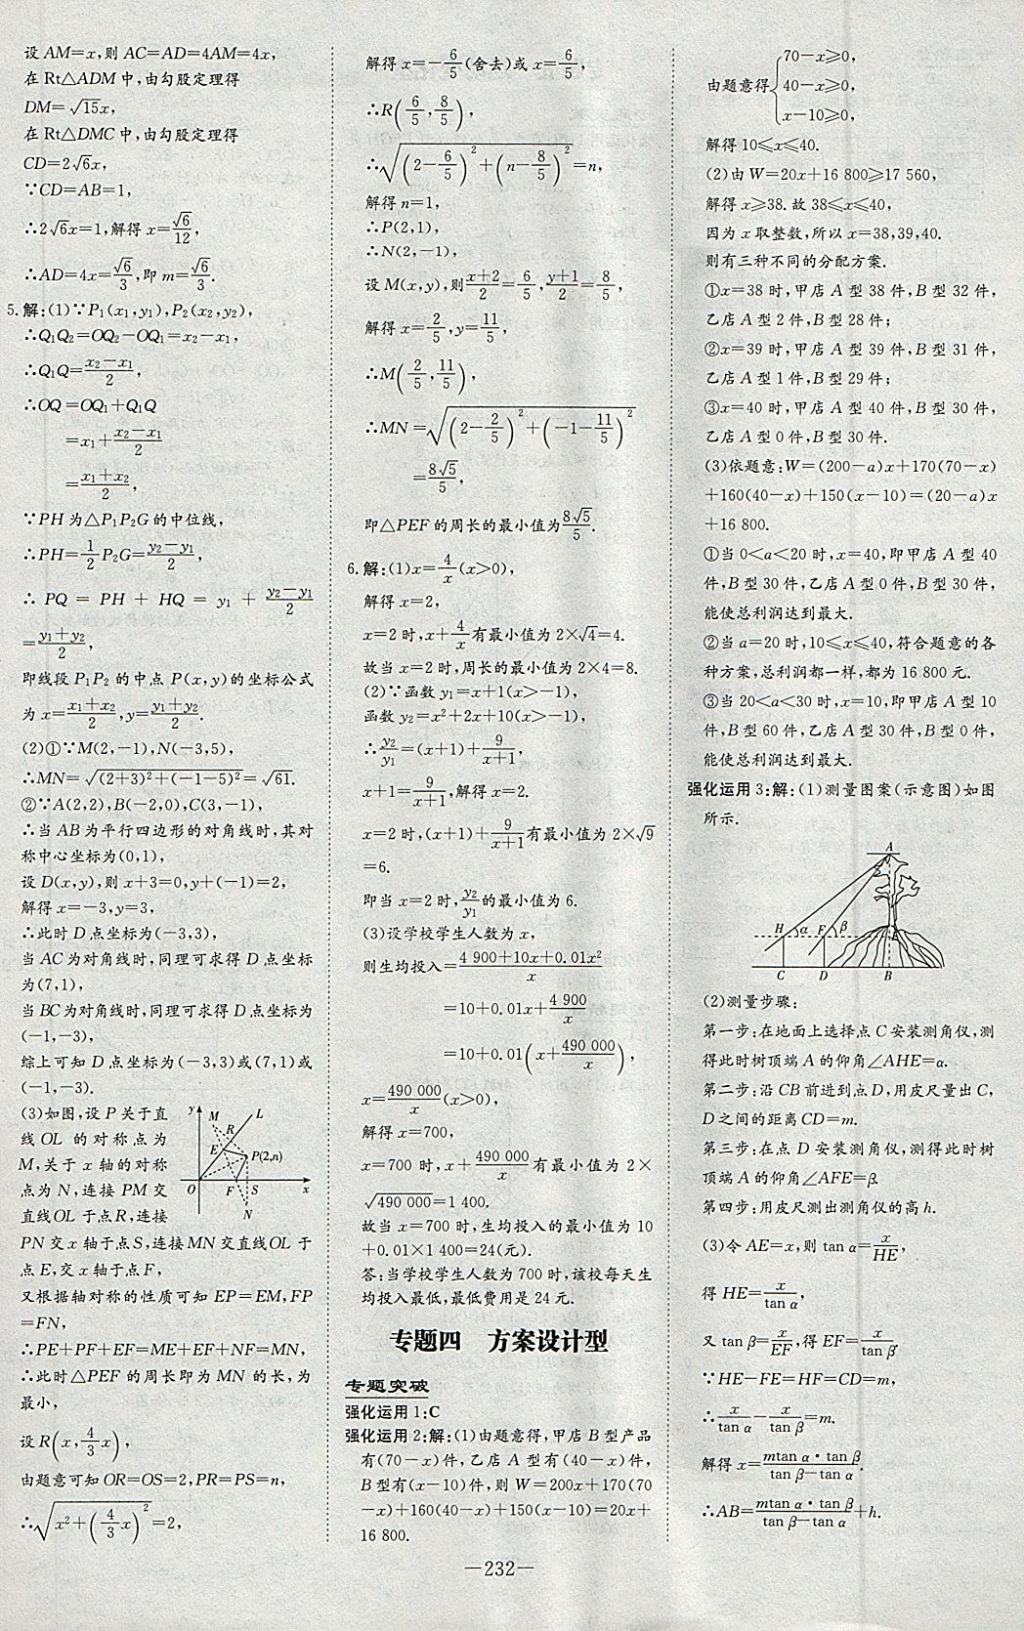 设 AM=x,则 AC=AD=4AM=4x,
在 Rt△ADM 中,由勾股定理得
DM=√15x,
在 Rt△DMC 中,由勾股定理得
CD=2√6x,
∵CD=AB=1,
∴2√6x=1,解得 x=√6/12,
∴AD=4x=√6/3,即 m=√6/3.
5.解:(1)∵P₁(x₁,y₁),P₂(x₂,y₂),
∴Q₁Q₂=OQ₂-OQ₁=x₂-x₁,
∴Q₁Q=(x₂-x₁)/2,
∴OQ=OQ₁+Q₁Q
=x₁+(x₂-x₁)/2
=(x₁+x₂)/2,
∵PH 为△P₁P₂G 的中位线,
∴PH=1/2 P₂G=(y₂-y₁)/2,
∴ PQ = PH + HQ = y₁ + (y₂-y₁)/2
=(y₁+y₂)/2,
即线段 P₁P₂ 的中点 P(x,y)的坐标公式
为 x=(x₁+x₂)/2,y=(y₁+y₂)/2.
(2)①∵M(2,-1),N(-3,5),
∴MN=√((2+3)²+(-1-5)²)=√61.
②∵A(2,2),B(-2,0),C(3,-1),
∴当 AB 为平行四边形的对角线时,其对
称中心坐标为(0,1),
设 D(x,y),则 x+3=0,y+(-1)=2,
解得 x=-3,y=3,
∴此时 D 点坐标为(-3,3),
当 AC 为对角线时,同理可求得 D 点坐标
为(7,1),
当 BC 为对角线时,同理可求得 D 点坐标为
(-1,-3),
综上可知 D 点坐标为(-3,3)或(7,1)或
(-1,-3).
(3)如图,设 P 关于直
线 OL 的对称点为
M,关于 x 轴的对称
点为 N,连接 PM 交
直线 OL 于点 R,连接
y M L
R
E P(2,n)
O F S x
N
PN 交 x 轴于点 S,连接 MN 交直线 OL 于
点 E,交 x 轴于点 F,
又根据轴对称的性质可知 EP=EM,FP
=FN,
∴PE+PF+EF=ME+EF+NF=MN,
∴此时△PEF 的周长即为 MN 的长,为
最小,
设 R(x,4/3 x),
由题意可知 OR=OS=2,PR=PS=n,
∴√(x²+(4/3 x)²)=2,
解得 x=-6/5(舍去)或 x=6/5,
∴R(6/5,8/5),
∴√((2-6/5)²+(n-8/5)²)=n,
解得 n=1,
∴P(2,1),
∴N(2,-1),
设 M(x,y),则(x+2)/2=6/5,(y+1)/2=8/5,
解得 x=2/5,y=11/5,
∴M(2/5,11/5),
∴MN=√((2-2/5)²+(-1-11/5)²)
=8√5/5,
即△PEF 的周长的最小值为8√5/5.
6.解:(1)x=4/x(x>0),
解得 x=2,
x=2 时,x+4/x有最小值为 2×√4=4.
故当 x=2 时,周长的最小值为 2×4=8.
(2)∵函数 y₁=x+1(x>-1),
函数 y₂=x²+2x+10(x>-1),
∴y₂/y₁=(x+1)+9/(x+1),
x+1=9/(x+1),解得 x=2.
x=2 时,(x+1)+9/(x+1)有最小值为 2×√9
=6.
即当 x=2 时,y₂/y₁的最小值为 6.
(3)设学校学生人数为 x,
则生均投入=(4 900+10x+0.01x²)/x
=10+0.01x+4 900/x
=10+0.01(x+490 000/x),
x=490 000/x(x>0),
解得 x=700,
x=700 时,x+490 000/x有最小值为 2×
√490 000=1 400.
故当 x=700 时,生均投入的最小值为 10
+0.01×1 400=24(元).
答:当学校学生人数为 700 时,该校每天生
均投入最低,最低费用是 24 元.
专题四 方案设计型
专题突破
强化运用 1:C
强化运用 2:解:(1)由题意得,甲店 B 型产品
有(70-x)件,乙店 A 型有(40-x)件,
B 型有(x-10)件,则 W=200x+170(70
-x)+160(40-x)+150(x-10)=20x+
16 800.
由题意得{70-x≥0,
40-x≥0,
x-10≥0,
解得 10≤x≤40.
(2)由 W=20x+16 800≥17 560,
解得 x≥38.故 38≤x≤40,
因为 x 取整数,所以 x=38,39,40.
则有三种不同的分配方案.
①x=38 时,甲店 A 型 38 件,B 型 32 件,
乙店 A 型 2 件,B 型 28 件;
②x=39 时,甲店 A 型 39 件,B 型 31 件,
乙店 A 型 1 件,B 型 29 件;
③x=40 时,甲店 A 型 40 件,B 型 30 件,
乙店 A 型 0 件,B 型 30 件.
(3)依题意:W=(200-a)x+170(70-x)
+160(40-x)+150(x-10)=(20-a)x
+16 800.
①当 0<a<20 时,x=40,即甲店 A 型 40
件,B 型 30 件,乙店 A 型 0 件,B 型 30 件,
能使总利润达到最大.
②当 a=20 时,10≤x≤40,符合题意的各
种方案,总利润都一样,都为 16 800 元.
③当 20<a<30 时,x=10,即甲店 A 型 10
件,B 型 60 件,乙店 A 型 30 件,B 型 0 件,
能使总利润达到最大.
强化运用 3:解:(1)测量图案(示意图)如图
所示.
A
H α F β E
C D B
(2)测量步骤:
第一步:在地面上选择点 C 安装测角仪,测
得此时树顶端 A 的仰角∠AHE=α.
第二步:沿 CB 前进到点 D,用皮尺量出 C,
D 之间的距离 CD=m.
第三步:在点 D 安装测角仪,测得此时树
顶端 A 的仰角∠AFE=β.
第四步:用皮尺测出测角仪的高 h.
(3)令 AE=x,则 tan α=x/HE,
得 HE=x/tan α,
又 tan β=x/EF,得 EF=x/tan β,
∵HE-FE=HF=CD=m,
∴x/tan α-x/tan β=m.
解得 x=(mtan α·tan β)/(tan β-tan α).
∴AB=(mtan α·tan β)/(tan β-tan α)+h.
—232—